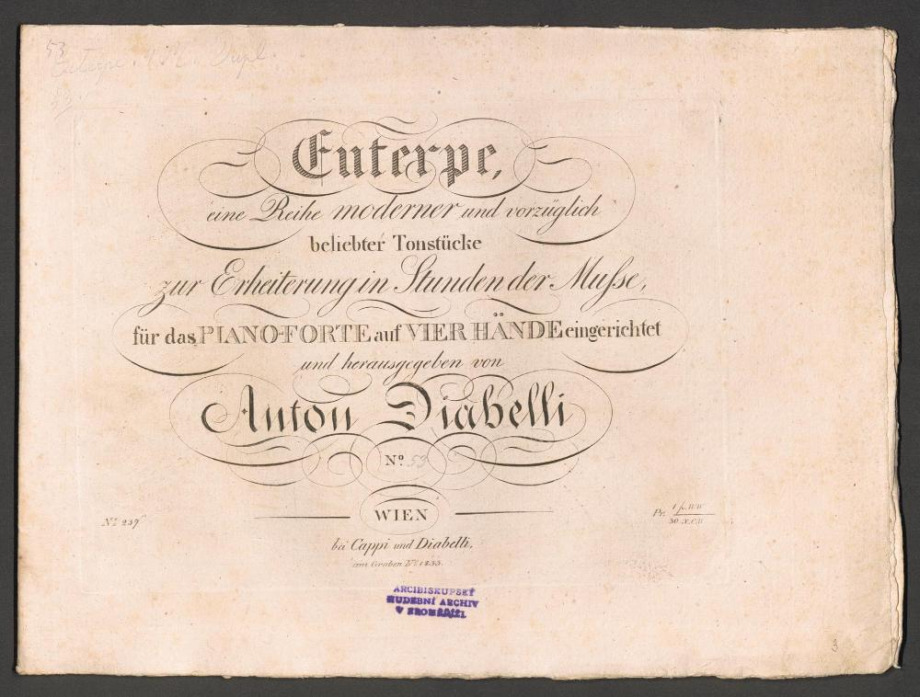 53
Euterpe
53
Euterpe,
eine Reihe moderner und vorzüglich
beliebter Tonstücke
zur Erheiterung in Stunden der Muſse,
für das PIANO-FORTE auf VIER HÄNDE eingerichtet
und herausgegeben von
Anton Diabelli
No. 53
WIEN
No. 237
Pr.
bei Cappi und Diabelli,
am Graben No. 1133.
ARCIBISKUPSKÝ
HUDEBNÍ ARCHIV
V KROMĚŘÍŽI
3